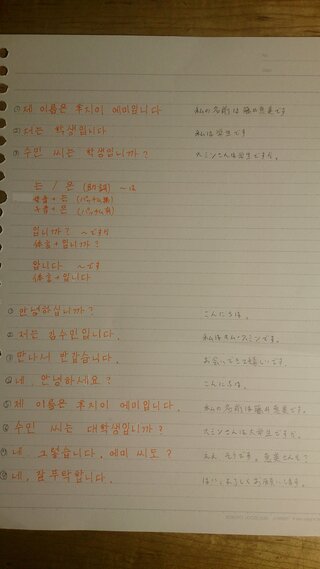 ① 제 이름은 후지이 에미입니다 私の名前は藤井恵美です
② 저는 학생입니다 私は学生です
③ 수민 씨는 학생입니까? スミンさんは学生ですか。
는 / 은 (助詞) ~は
母音 + 는 (パッチム無)
子音 + 은 (パッチム有)
입니까? ~ですか
体言 + 입니까?
입니다 ~です
体言 + 입니다
① 안녕하십니까? こんにちは。
② 저는 김수민입니다. 私はキム・スミンです。
③ 만나서 반갑습니다. お会いできて嬉しいです。
④ 네, 안녕하세요? こんにちは。
⑤ 제 이름은 후지이 에미입니다. 私の名前は藤井恵美です。
⑥ 수민 씨는 대학생입니까? スミンさんは大学生ですか。
⑦ 네, 그렇습니다. 에미 씨도? ええ、そうです。恵美さんも?
⑧ 네, 잘 부탁합니다. はい、よろしくお願いします。